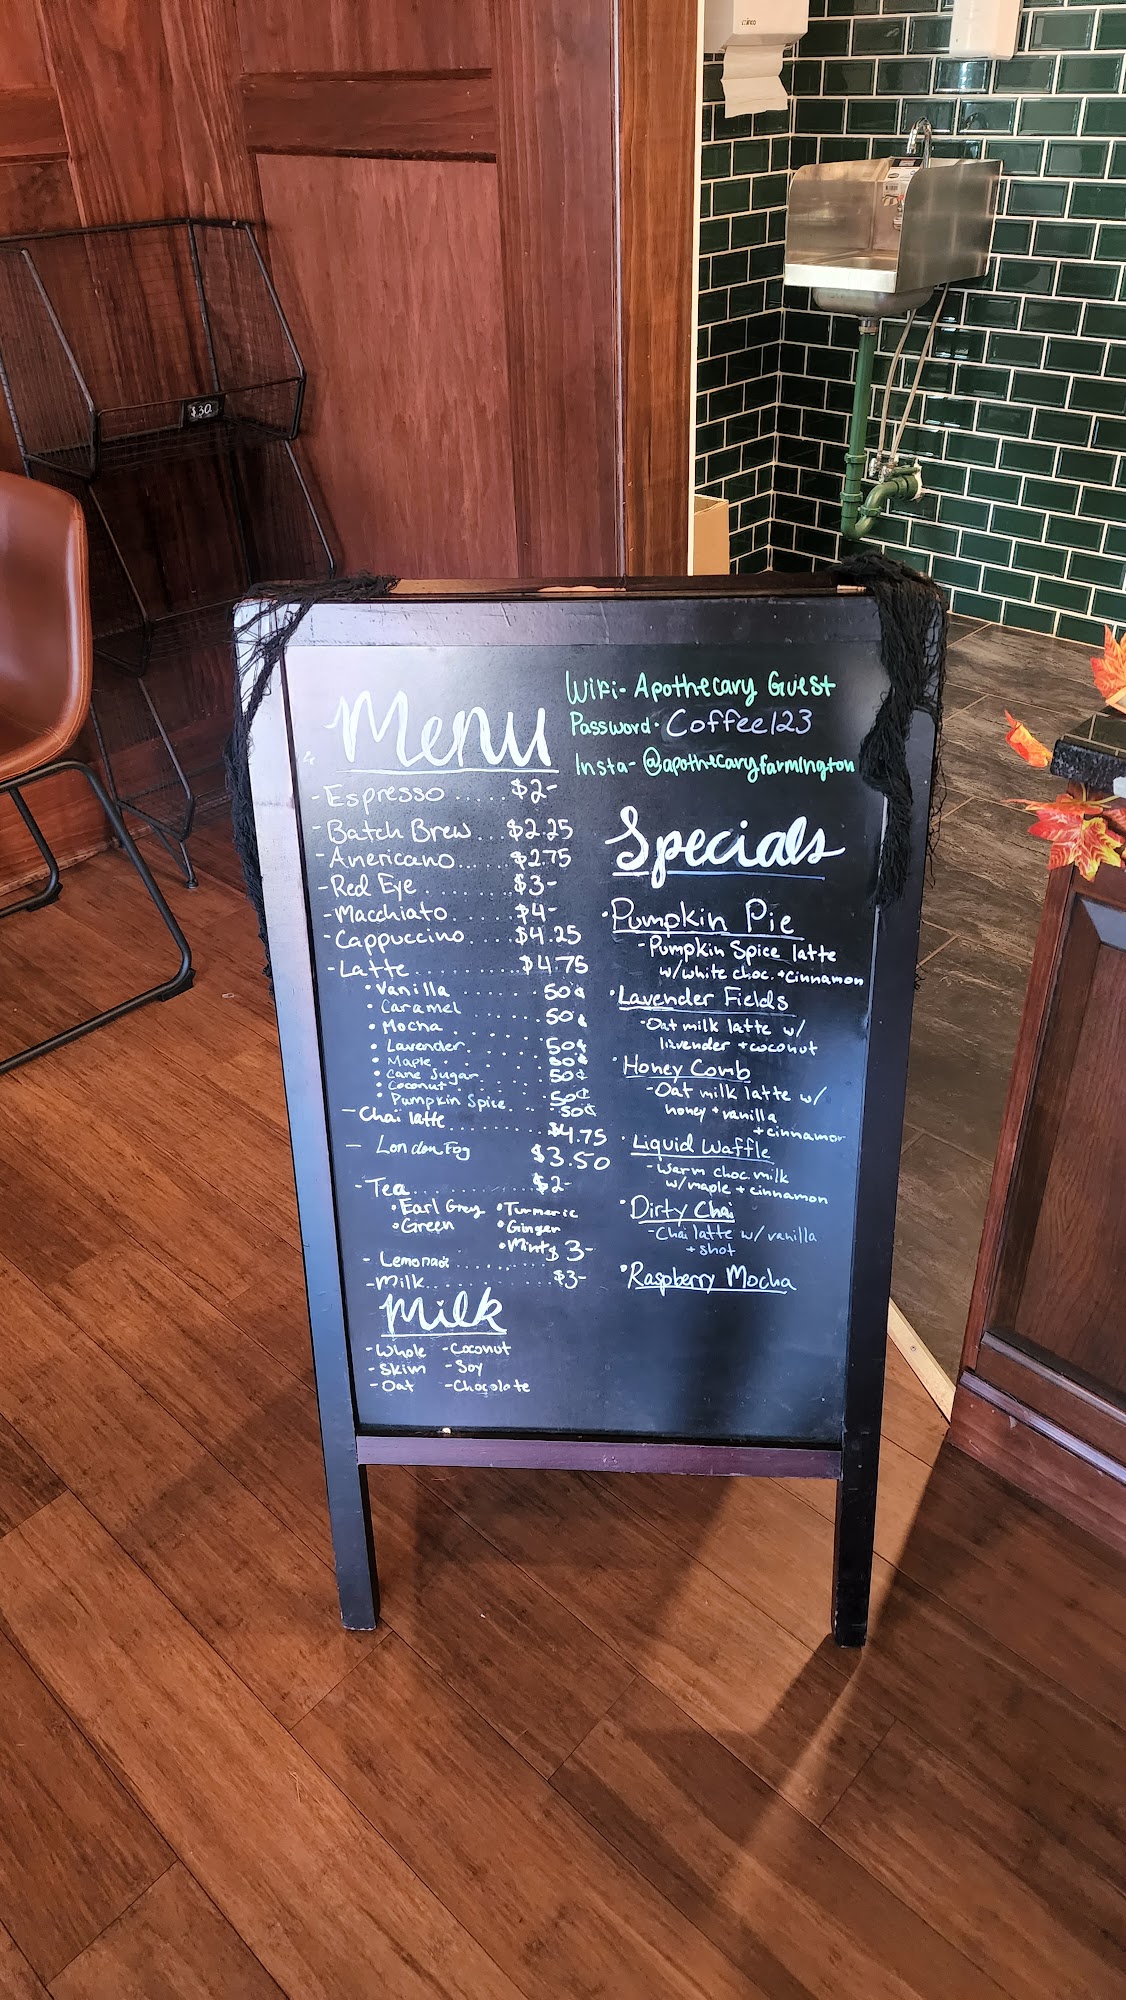 minco
$30
Menu
- Espresso ..... $2-
- Batch Brew... $2.25
- Americano..... $2.75
- Red Eye ........ $3-
- Macchiato....... $4-
- Cappuccino..... $4.25
- Latte............ $4.75
• Vanilla ........ 50¢
• Caramel
• Mocha ........ 50¢
• Lavender....... 50¢
• Maple ........ 50¢
• Cane Sugar...... 50¢
• Coconut........ 50¢
• Pumpkin Spice... 50¢
- Chai latte......... $4.75
- London Fog $3.50
- Tea............. $2-
• Earl Grey • Turmeric
• Green • Ginger
• Mint
- Lemonade ......... $3-
- Milk............ $3-
Milk
- Whole - Coconut
- Skim - Soy
- Oat - Chocolate
Wifi- Apothecary Guest
Password- Coffee123
Insta- @apothecaryfarmington
Specials
• Pumpkin Pie
- Pumpkin Spice latte
w/white choc. + cinnamon
• Lavender Fields
- Oat milk latte w/
lavender + coconut
• Honey Comb
- Oat milk latte w/
honey + vanilla
+ cinnamon
• Liquid Waffle
- Warm choc. milk
w/maple + cinnamon
• Dirty Chai
- Chai latte w/ vanilla
+ shot
• Raspberry Mocha